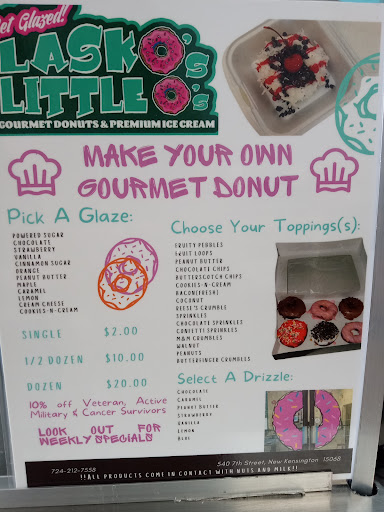 Get Glazed!
LASKO's
LITTLE O's
GOURMET DONUTS & PREMIUM ICE CREAM
MAKE YOUR OWN
GOURMET DONUT
Pick A Glaze:
POWERED SUGAR
CHOCOLATE
STRAWBERRY
VANILLA
CINNAMON SUGAR
ORANGE
PEANUT BUTTER
MAPLE
CARAMEL
LEMON
CREAM CHEESE
COOKIES-N-CREAM
SINGLE $2.00
1/2 DOZEN $10.00
DOZEN $20.00
10% off Veteran, Active
Military & Cancer Survivors
LOOK OUT FOR
WEEKLY SPECIALS
Choose Your Toppings(s):
FRUITY PEBBLES
FRUIT LOOPS
PEANUT BUTTER
CHOCOLATE CHIPS
BUTTERSCOTCH CHIPS
COOKIES-N-CREAM
BACON(FRESH)
COCONUT
REESE'S CRUMBLE
SPRINKLES
CHOCOLATE SPRINKLES
CONFETTI SPRINKLES
M&M CRUMBLES
WALNUT
PEANUTS
BUTTERFINGER CRUMBLES
Select A Drizzle:
CHOCOLATE
CARAMEL
PEANUT BUTTER
STRAWBERRY
VANILLA
LEMON
BLUE
724-212-7558 540 7th Street, New Kensington 15068
!!ALL PRODUCTS COME IN CONTACT WITH NUTS AND MILK!!